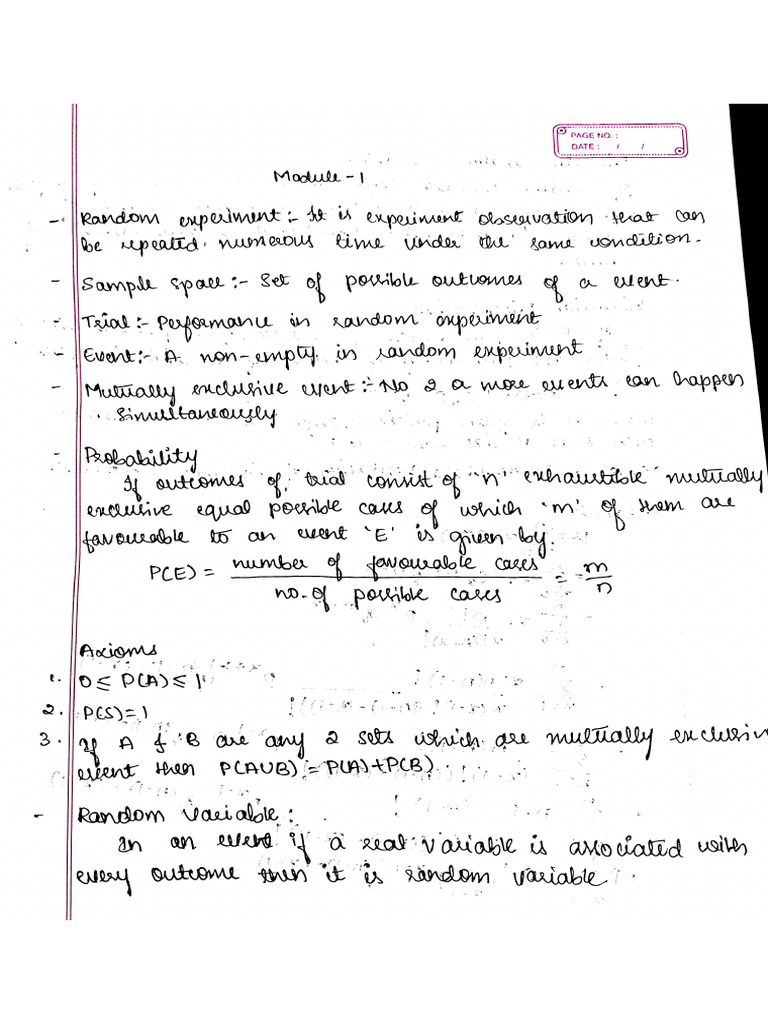 PAGE NO. :
DATE : / /
Module - 1
- Random experiment :- It is experiment observation that can
be repeated numerous time under the same condition.
- Sample space :- Set of possible outcomes of a event.
- Trial :- Performance in random experiment
- Event :- A non-empty in random experiment
- Mutually exclusive event :- No 2 a more events can happen
simultaneously
- Probability
If outcomes of trial consist of 'n' exhaustible mutually
exclusive equal possible cases of which 'm' of them are
favourable to an event 'E' is given by.
P(E) = number of favourable cases / no. of possible cases = m/n
Axioms
1. 0 ≤ P(A) ≤ 1
2. P(S) = 1
3. If A & B are any 2 sets which are mutually exclusive
event then P(AUB) = P(A)+P(B).
- Random Variable :
In an event if a real variable is associated with
every outcome then it is random variable